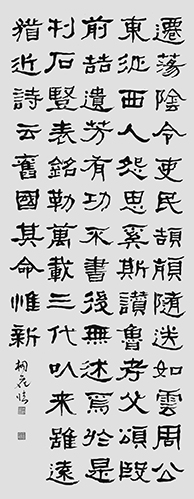 遷蕩陰令吏民頡頏隨送如雲周公
東征西人怨思奚斯讚魯考父頌殷
前喆遺芳有功不書後無述焉於是
刊石竪表銘勒萬載三代以來雖遠
猶近詩云舊國其命惟新